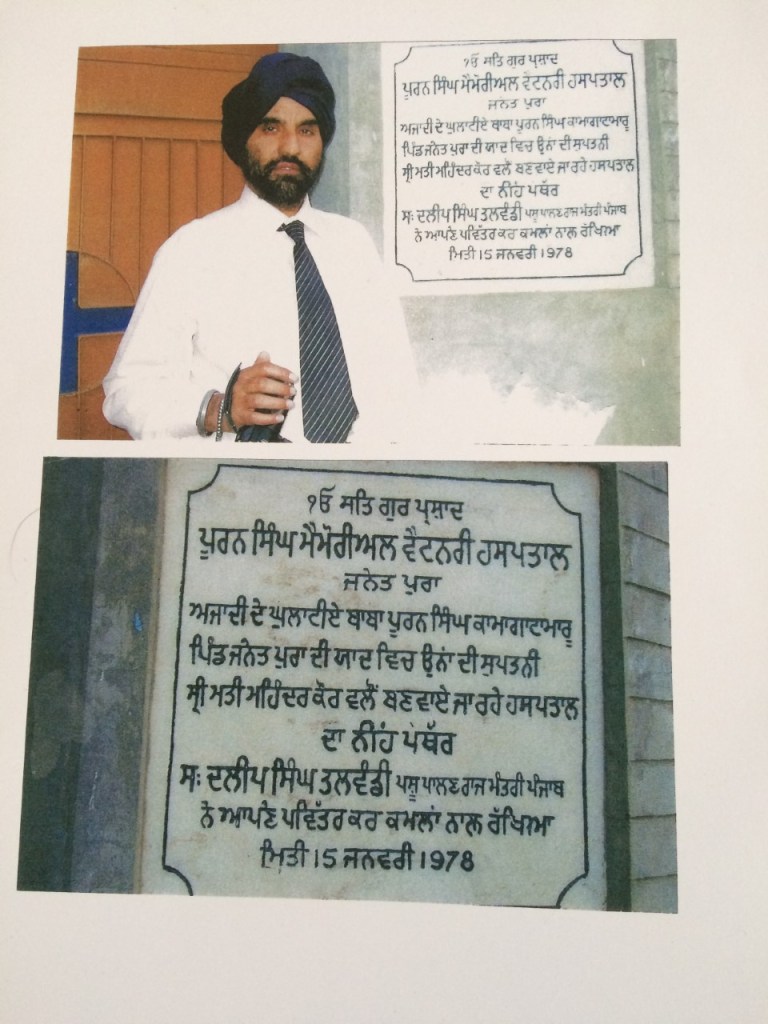 ੧ਓ ਸਤਿ ਗੁਰ ਪ੍ਰਸ਼ਾਦ
ਪੂਰਨ ਸਿੰਘ ਮੈਮੋਰੀਅਲ ਵੈਟਨਰੀ ਹਸਪਤਾਲ
ਜਨੇਤ ਪੁਰਾ
ਅਜਾਦੀ ਦੇ ਘੁਲਾਟੀਏ ਬਾਬਾ ਪੂਰਨ ਸਿੰਘ ਕਾਮਾਗਾਟਾਮਾਰੂ
ਪਿੰਡ ਜਨੇਤ ਪੁਰਾ ਦੀ ਯਾਦ ਵਿਚ ਉਨਾਂ ਦੀ ਸੁਪਤਨੀ
ਸ੍ਰੀ ਮਤੀ ਮਹਿੰਦਰ ਕੌਰ ਵਲੋਂ ਬਣਵਾਏ ਜਾ ਰਹੇ ਹਸਪਤਾਲ
ਦਾ ਨੀਂਹ ਪੱਥਰ
ਸ: ਦਲੀਪ ਸਿੰਘ ਤਲਵੰਡੀ ਪਸ਼ੂ ਪਾਲਣ ਰਾਜ ਮੰਤਰੀ ਪੰਜਾਬ
ਨੇ ਆਪਣੇ ਪਵਿੱਤਰ ਕਰ ਕਮਲਾਂ ਨਾਲ ਰੱਖਿਆ
ਮਿਤੀ 15 ਜਨਵਰੀ 1978
੧ਓ ਸਤਿ ਗੁਰ ਪ੍ਰਸ਼ਾਦ
ਪੂਰਨ ਸਿੰਘ ਮੈਮੋਰੀਅਲ ਵੈਟਨਰੀ ਹਸਪਤਾਲ
ਜਨੇਤ ਪੁਰਾ
ਅਜਾਦੀ ਦੇ ਘੁਲਾਟੀਏ ਬਾਬਾ ਪੂਰਨ ਸਿੰਘ ਕਾਮਾਗਾਟਾਮਾਰੂ
ਪਿੰਡ ਜਨੇਤ ਪੁਰਾ ਦੀ ਯਾਦ ਵਿਚ ਉਨਾਂ ਦੀ ਸੁਪਤਨੀ
ਸ੍ਰੀ ਮਤੀ ਮਹਿੰਦਰ ਕੌਰ ਵਲੋਂ ਬਣਵਾਏ ਜਾ ਰਹੇ ਹਸਪਤਾਲ
ਦਾ ਨੀਂਹ ਪੱਥਰ
ਸ: ਦਲੀਪ ਸਿੰਘ ਤਲਵੰਡੀ ਪਸ਼ੂ ਪਾਲਣ ਰਾਜ ਮੰਤਰੀ ਪੰਜਾਬ
ਨੇ ਆਪਣੇ ਪਵਿੱਤਰ ਕਰ ਕਮਲਾਂ ਨਾਲ ਰੱਖਿਆ
ਮਿਤੀ 15 ਜਨਵਰੀ 1978